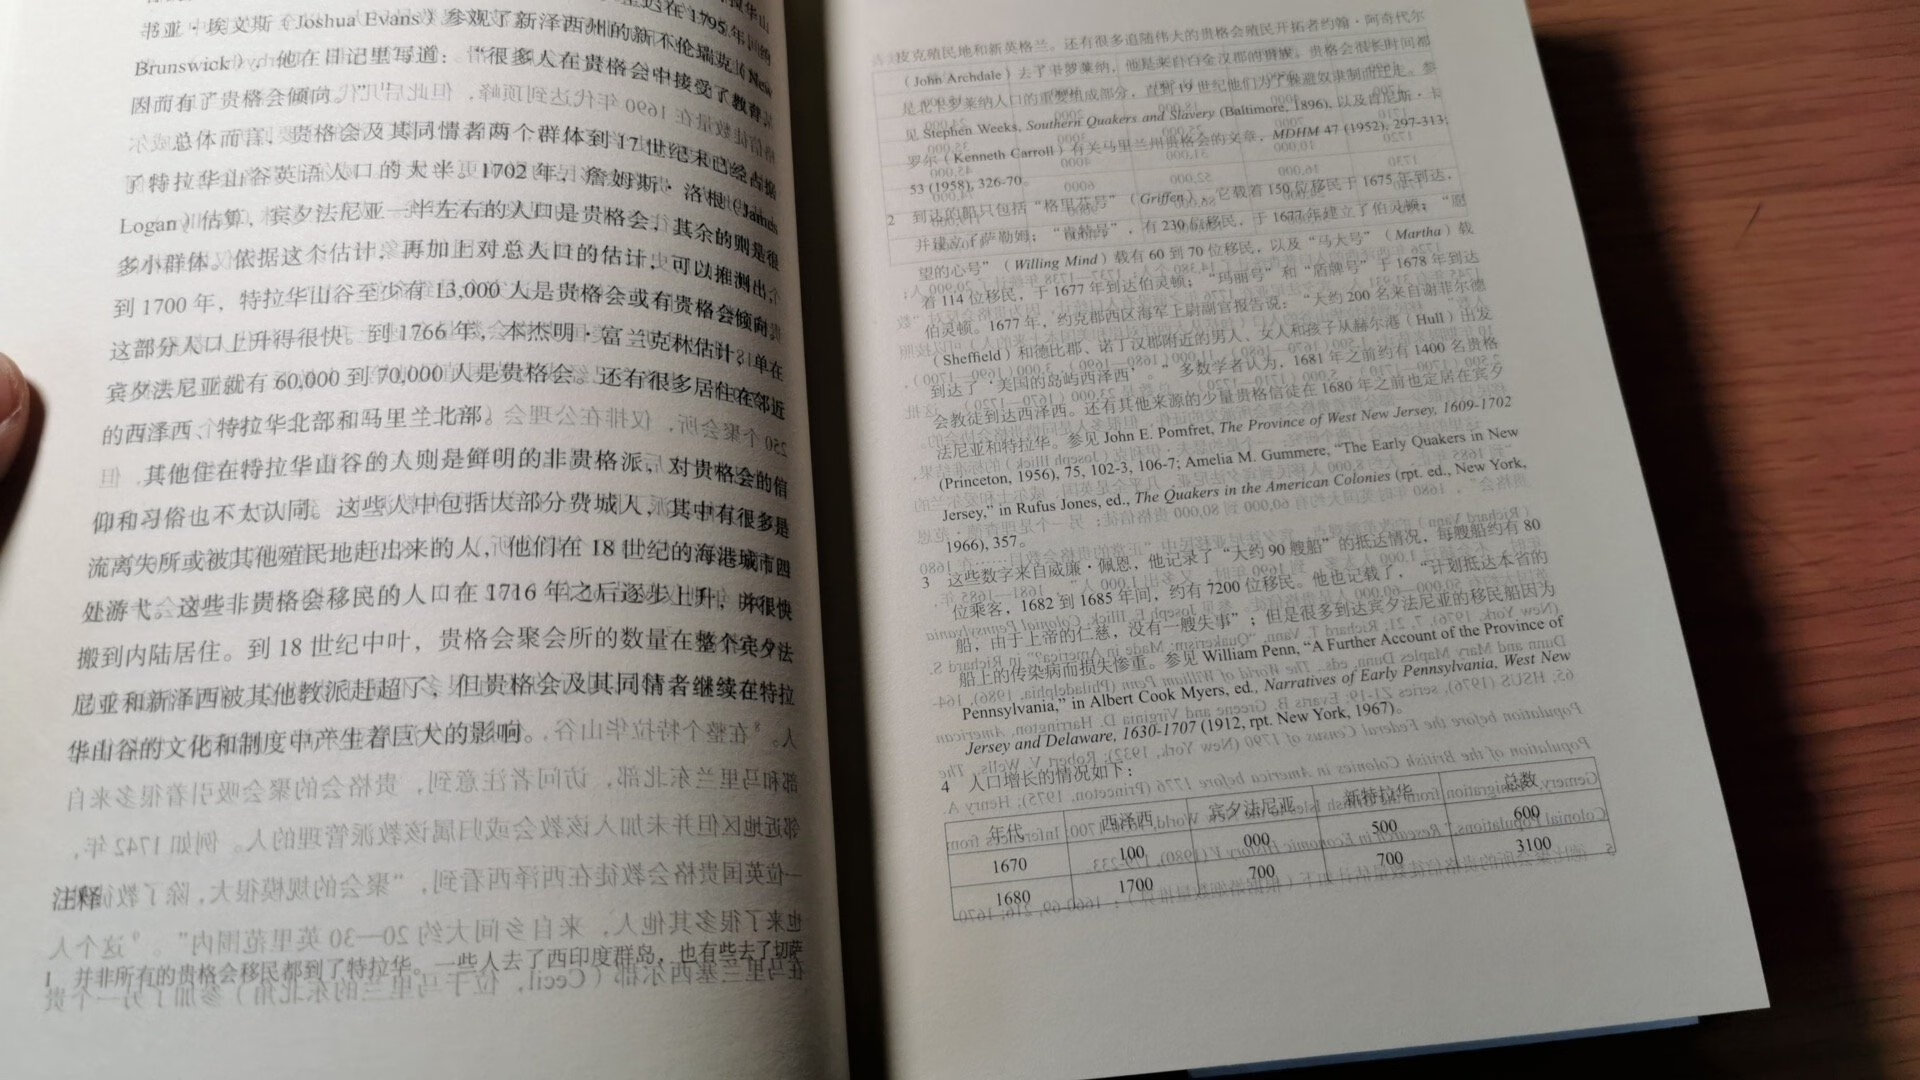 书亚·埃文斯（Joshua Evans）参观了新泽西州的新不伦瑞克（New
Brunswick），他在日记里写道：“很多人在贵格会中接受了教育，
因而有了贵格会倾向。”
总体而言，贵格会及其同情者两个群体到 17 世纪末已经占据
了特拉华山谷英语人口的大半。1702 年，詹姆斯·洛根（James
Logan）估算，宾夕法尼亚一半左右的人口是贵格会，其余的则是很
多小群体。依据这个估计，再加上对总人口的估计，可以推测出，
到 1700 年，特拉华山谷至少有 13,000 人是贵格会或有贵格会倾向。
这部分人口上升得很快。到 1766 年，本杰明·富兰克林估计，单在
宾夕法尼亚就有 60,000 到 70,000 人是贵格会。还有很多居住在邻近
的西泽西、特拉华北部和马里兰北部。
其他住在特拉华山谷的人则是鲜明的非贵格派，对贵格会的信
仰和习俗也不太认同。这些人中包括大部分费城人，其中有很多是
流离失所或被其他殖民地赶出来的人，他们在 18 世纪的海港城市四
处游弋。这些非贵格会移民的人口在 1716 年之后逐步上升，并很快
搬到内陆居住。到 18 世纪中叶，贵格会聚会所的数量在整个宾夕法
尼亚和新泽西被其他教派赶超了，但贵格会及其同情者继续在特拉
华山谷的文化和制度中产生着巨大的影响。
注释
1 并非所有的贵格会移民都到了特拉华。一些人去了西印度群岛，也有些去了切萨
皮克殖民地和新英格兰。还有很多追随伟大的贵格会殖民开拓者约翰·阿奇代尔
（John Archdale）去了卡罗莱纳，他是来自白金汉郡的贵族。贵格会很长时间都
是北卡罗莱纳人口的重要组成部分，直到 19 世纪他们为了躲避奴隶制而迁走。参
见 Stephen Weeks, Southern Quakers and Slavery (Baltimore, 1896), 以及肯尼斯·卡
罗尔（Kenneth Carroll）有关马里兰州贵格会的文章，MDHM 47 (1952), 297-313;
53 (1958), 326-70。
2 到达的船只包括“格里芬号”（Griffen），它载着 150 位移民于 1675 年到达，
并建立了萨勒姆；“肯特号”，有 230 位移民，于 1677 年建立了伯灵顿；“愿
望的心号”（Willing Mind）载有 60 到 70 位移民，以及“马大号”（Martha）载
着 114 位移民，于 1677 年到达伯灵顿；“玛丽号”和“盾牌号”于 1678 年到达
伯灵顿。1677 年，约克郡西区海军上尉副官报告说：“大约 200 名来自谢菲尔德
（Sheffield）和德比郡、诺丁汉郡附近的男人、女人和孩子从赫尔港（Hull）出发
到达了‘美国的岛屿西泽西’。”多数学者认为，1681 年之前约有 1400 名贵格
会教徒到达西泽西。还有其他来源的少量贵格信徒在 1680 年之前也定居在宾夕
法尼亚和特拉华。参见 John E. Pomfret, The Province of West New Jersey, 1609-1702
(Princeton, 1956), 75, 102-3, 106-7; Amelia M. Gummere, “The Early Quakers in New
Jersey,” in Rufus Jones, ed., The Quakers in the American Colonies (rpt. ed., New York,
1966), 357。
3 这些数字来自威廉·佩恩，他记录了“大约 90 艘船”的抵达情况，每艘船约有 80
位乘客，1682 到 1685 年间，约有 7200 位移民。他也记载了，“计划抵达本省的
船，由于上帝的仁慈，没有一艘失事”；但是很多到达宾夕法尼亚的移民船因为
船上的传染病而损失惨重。参见 William Penn, “A Further Account of the Province of
Pennsylvania,” in Albert Cook Myers, ed., Narratives of Early Pennsylvania, West New
Jersey and Delaware, 1630-1707 (1912, rpt. New York, 1967)。
4 人口增长的情况如下：
年代 西泽西 宾夕法尼亚 新特拉华 总数
1670 100 000 500 600
1680 1700 700 700 3100